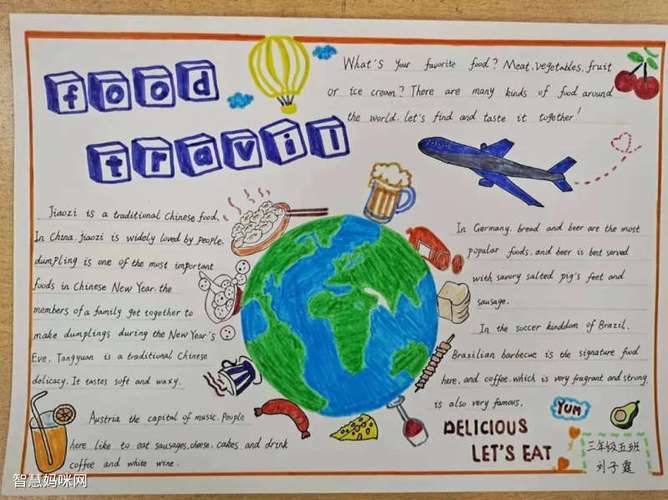 food
travil
What's your favorite food? Meat, vegetables, fruit
or ice cream? There are many kinds of food around
the world. let's find and taste it together!
Jiaozi is a traditional Chinese food.
In China, jiaozi is widely loved by people.
dumpling is one of the most important
foods in Chinese New Year. the
members of a family get together to
make dumplings during the New Year's
Eve. Tangyuan is a traditional Chinese
delicacy. It tastes soft and waxy.
Austria the capital of music. People
here like to eat sausages, cheese, cakes and drink
coffee and white wine.
In Germany, bread and beer are the most
popular foods, and beer is best served
with savory salted pig's feet and
sausage.
In the soccer kinddom of Brazil,
Brazilian barbecue is the signature food
here, and coffee, which is very fragrant and strong,
is also very famous.
YUM
DELICIOUS
LET'S EAT
三年级五班
刘子霆
智慧妈咪网